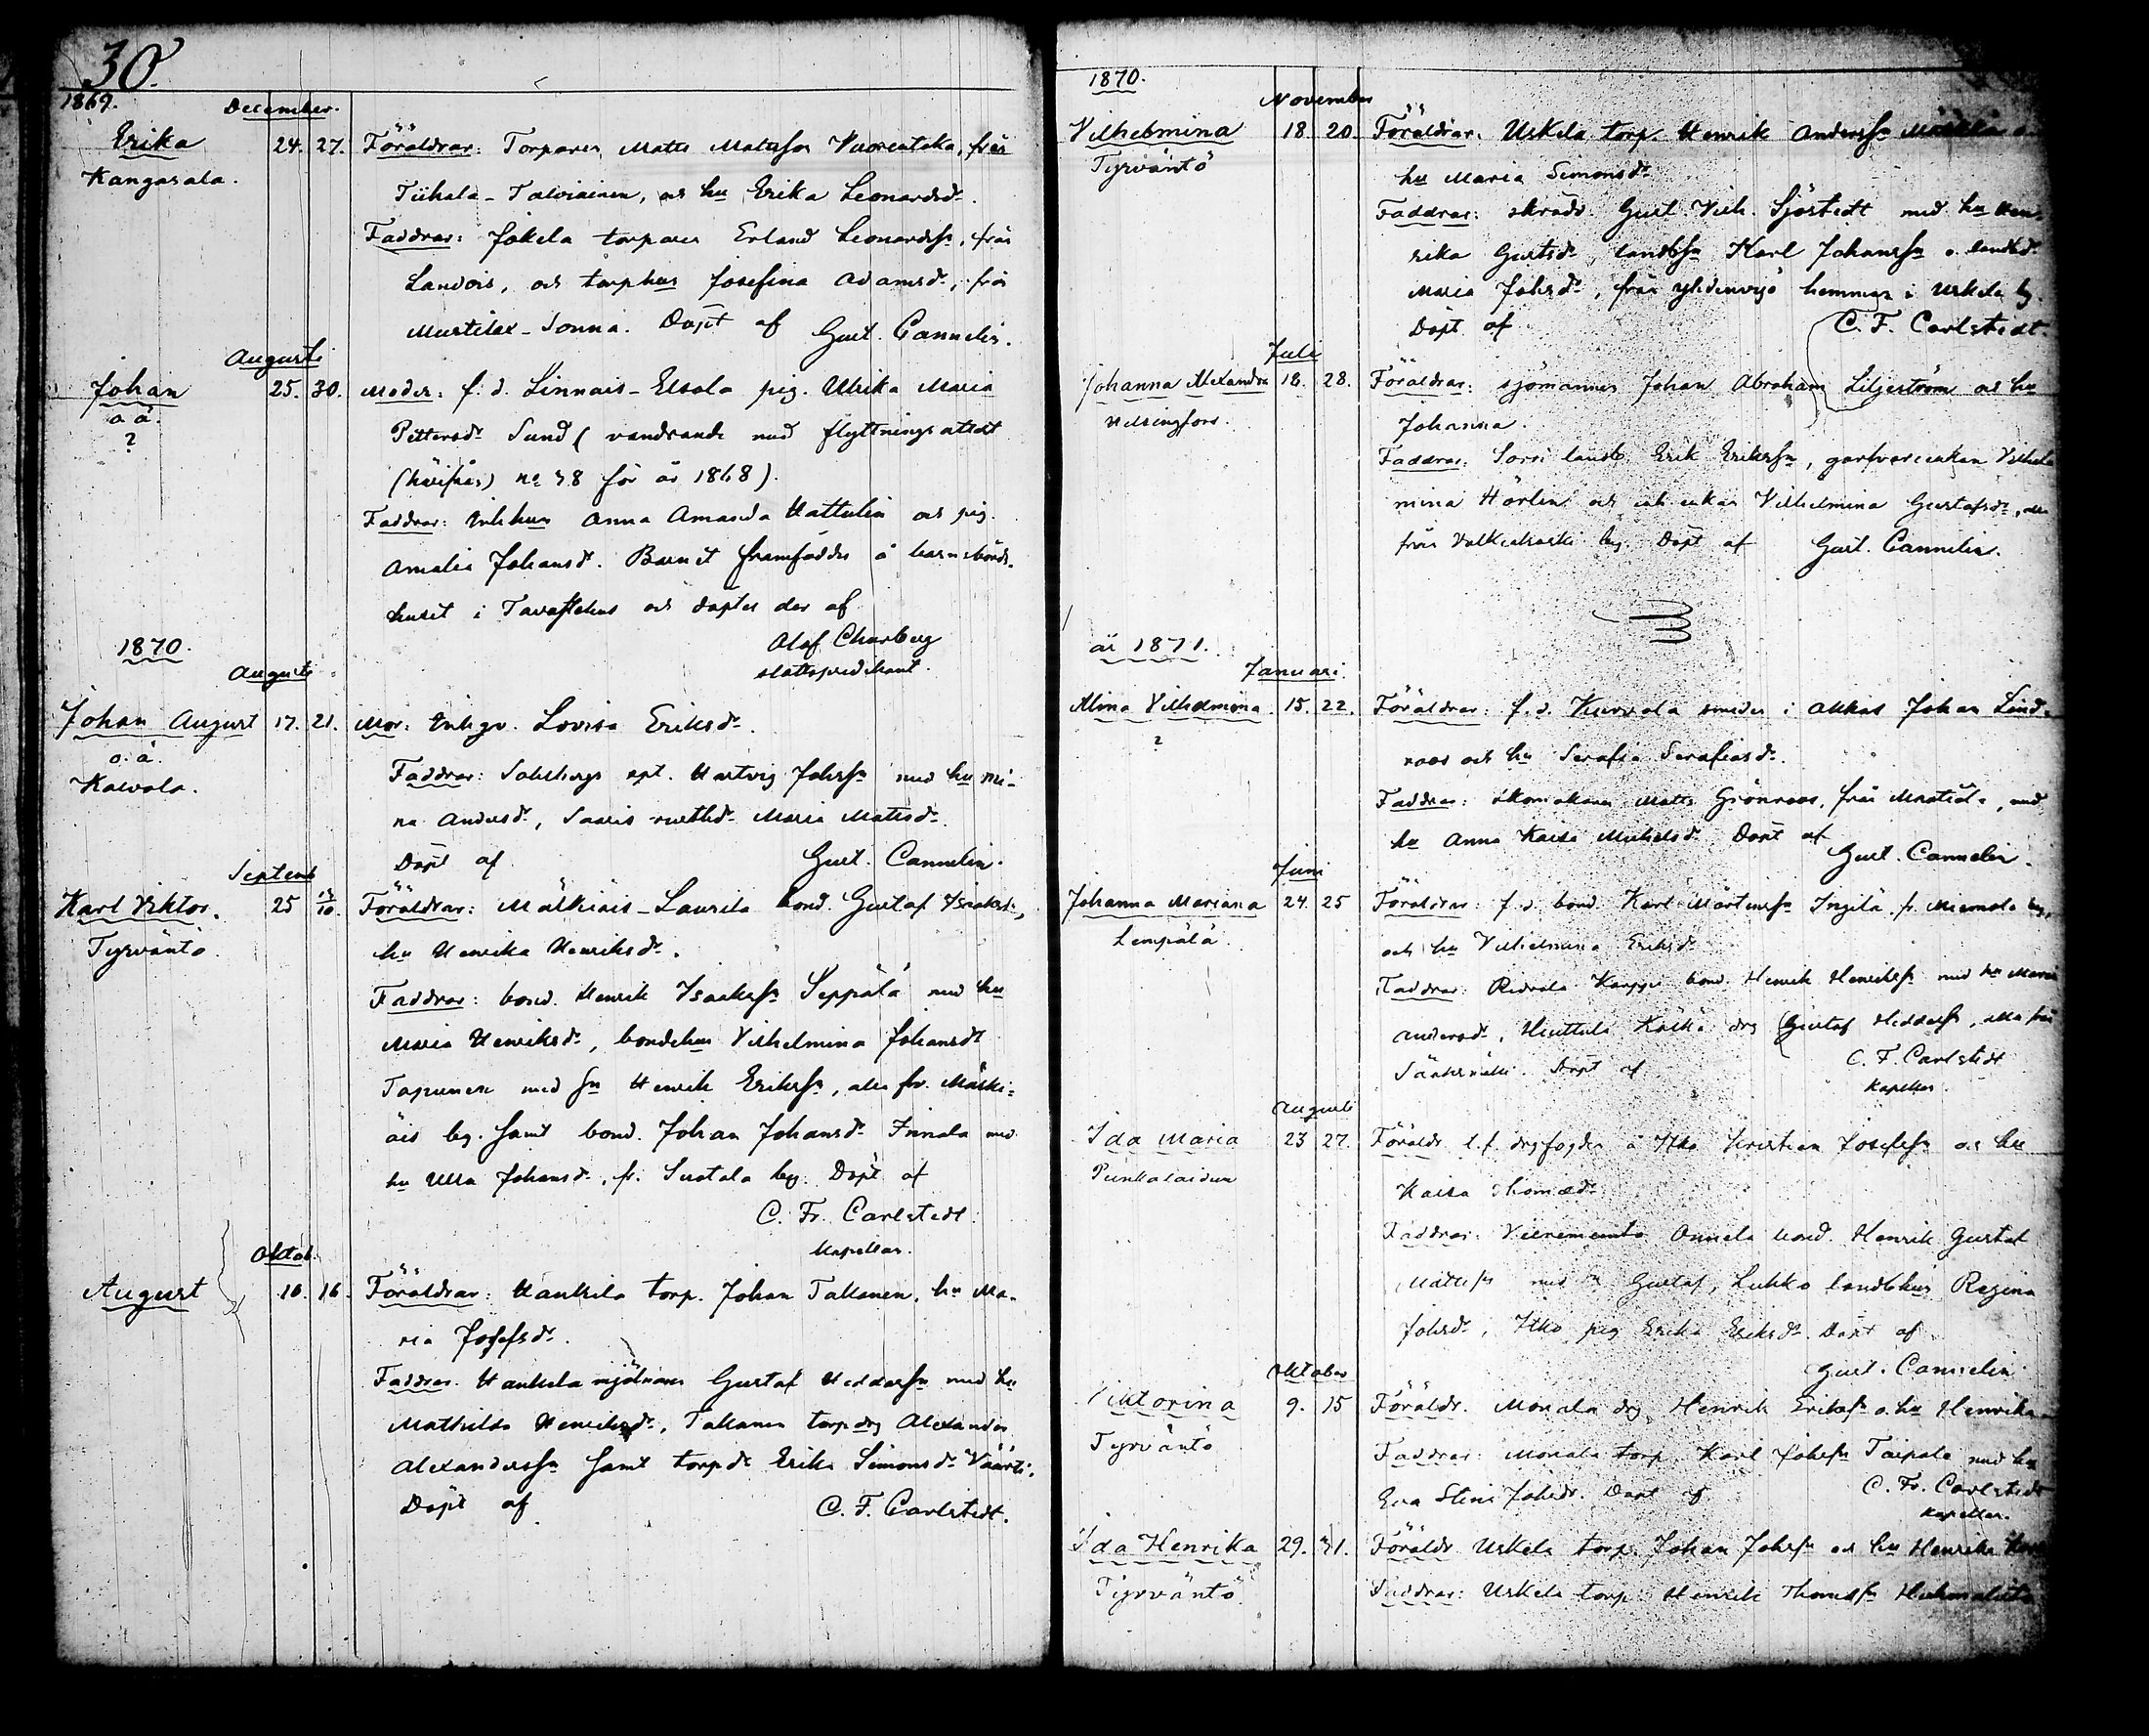 30.
1869.
December.
Erika 24. 27. Föräldrar: Torparen Matts Mattsson Vuorentaka, från
Kangasala. Tiihala-Talviainen, och hu Erika Leonardsdr.
Faddrar: Jokela torparen Erland Leonardssn, från
Landois, och torphus Josefina Adamsdr, från
Sonni. Döpt af Gust. Cannelin.
Augusti
Johan 25. 30. Moder: f. d. Linnais-Eskola pig. Ulrika Maria
o ä.
? Pettersdr Sund (vandrande med flyttningsattest
no 38 för år 1868).
Faddrar: Inhhus Anna Amanda Hattulin och pig.
Amalia Johansd. Barnet framföddes å barnsbörds-
huset i Tavastehus och döptes der af
Olof Churberg
slottspredikant.
1870.
Augusti
Johan August 17. 21. Mor: Inhqv. Lovisa Eriksdr.
o. ä.
Kalvola. Faddrar: Sahlbergs spt. Hartvig Johssn med hu Mi-
na Andersdr, Saaris Maria Mattsdr.
Döpt af Gust. Cannelin.
Septemb
Karl Viktor. 25 2/10. Föräldrar: Mälkiäis-Laurila bond. Gustaf Isakss,
Tyrväntö hu Henrika Henriksdr.
Faddrar: bond. Henrik Isakssn Seppälä med hu
Maria Henriksdr, bondehus Vilhelmina Johansdr
Tapunen med sn Henrik Erikssn, alla fr. Mälki-
äis by. samt bond. Johan Johansdr Innala med
hu Ulla Johansdr, fr. Suotala by. Döpt af
C. Fr. Carlstedt.
Kapellan.
Oktob.
August 10. 16. Föräldrar: Haukila torp. Johan Takanen, hu Ma-
ria Josefsdr.
Faddrar. Haukila mjölnaren Gustaf Heddarssn med hu
Mathilda Henriksdr, Takanen torpdrg Alexander
Alexanderssn samt torpdr Erika Simonsdr Väärti.
Döpt af C. F. Carlstedt.
1870.
November
Vilhelmina 18. 20. Föräldrar: Uskela torp. Henrik Anderssn
Tyrväntö hu Maria Simonsdr
Faddrar: skrädd. Gust. Vilh. Sjöstedt med hu Hen-
rika Gustsdr, landbsn Karl Johanssn o. landbdr
Maria Johsdr, från Yhdenvyö hemman i Uskela by.
Döpt af C. F. Carlstedt.
Juli
Johanna Alexandra 18. 28. Föräldrar: sjömannen Johan Abraham Liljeström och hu
Helsingfors. Johanna.
Faddrar: Sorri landb. Erik Erikssn, garfvareenkan Vilhel
mina Hörlin och inh enkan Vilhelmina Gustafsdr, alla
från Valkeakoski by. Döpt af Gust. Cannelin.
år 1871.
Januari.
Alina Vilhelmina 15. 22. Föräldrar: f. d. Kurvola smeden i Akkas Johan Lind-
? roos och hu Serafia Serafiasdr.
Faddrar: skomakaren Matts Grönroos, från , med
hu Anna Kaisa Michelsdr. Döpt af Gust. Cannelin.
Juni
Johanna Mariana 24. 25 Föräldrar: f. d. bond. Karl Mårtenssn Ingilä, fr. Miemola by,
Lempälä och hu Vilhelmina Eriksdr
Faddrar: Ridvala Karppi bond. Henrik Henrikssn med hu Maria
Andersdr, Huittula drg Gustaf Heddarssn, alla från
Sääksmäki. Döpt af C. F. Carlstedt
Kapellan.
Augusti
Ida Maria 23 27. Föräldr t.f. drgfogden å Itko Kristian Josefssn och hu
Punkalaidun Kaisa Thomædr
Faddrar: Annila bond. Henrik Gustaf
Mattssn med sn Gustaf, Luhko landbhus Regina
Johsdr, Itko pig Erika Eriksdr. Döpt af
Gust. Cannelin
Oktober
Viktorina 9. 15 Föräldr. Monala drg Henrik Erikssn o. hu Henrika
Tyrväntö Faddrar: Monala torp. Karl Johssn Taipale med hu
Eva Stina Johsdr. Döpt af C. Fr. Carlstedt
Kapellan.
Ida Henrika 29. 31. Föräldr Uskela torp. Johan Johssn och hu Henrika
Tyrväntö Faddrar: Uskela torp. Henrik Thomassn